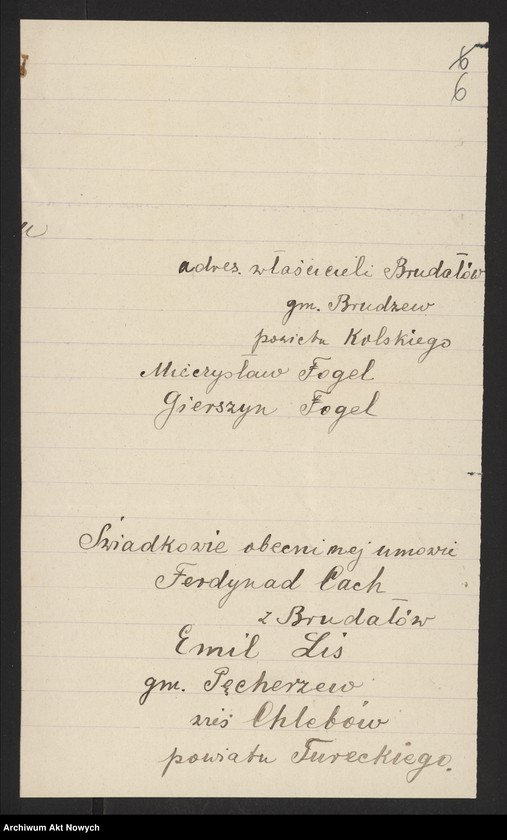 6
6
adres. właścicieli Brudatów
gm. Brudzew
powiatu Kolskiego
Mieczysław Fogel
Gierszyn Fogel
Świadkowie obecni nej umowie
Ferdynad Cach
z Brudatów
Emil Lis
gm. Pęcherzew
wieś Chlebów
powiatu Tureckiego.
Archiwum Akt Nowych